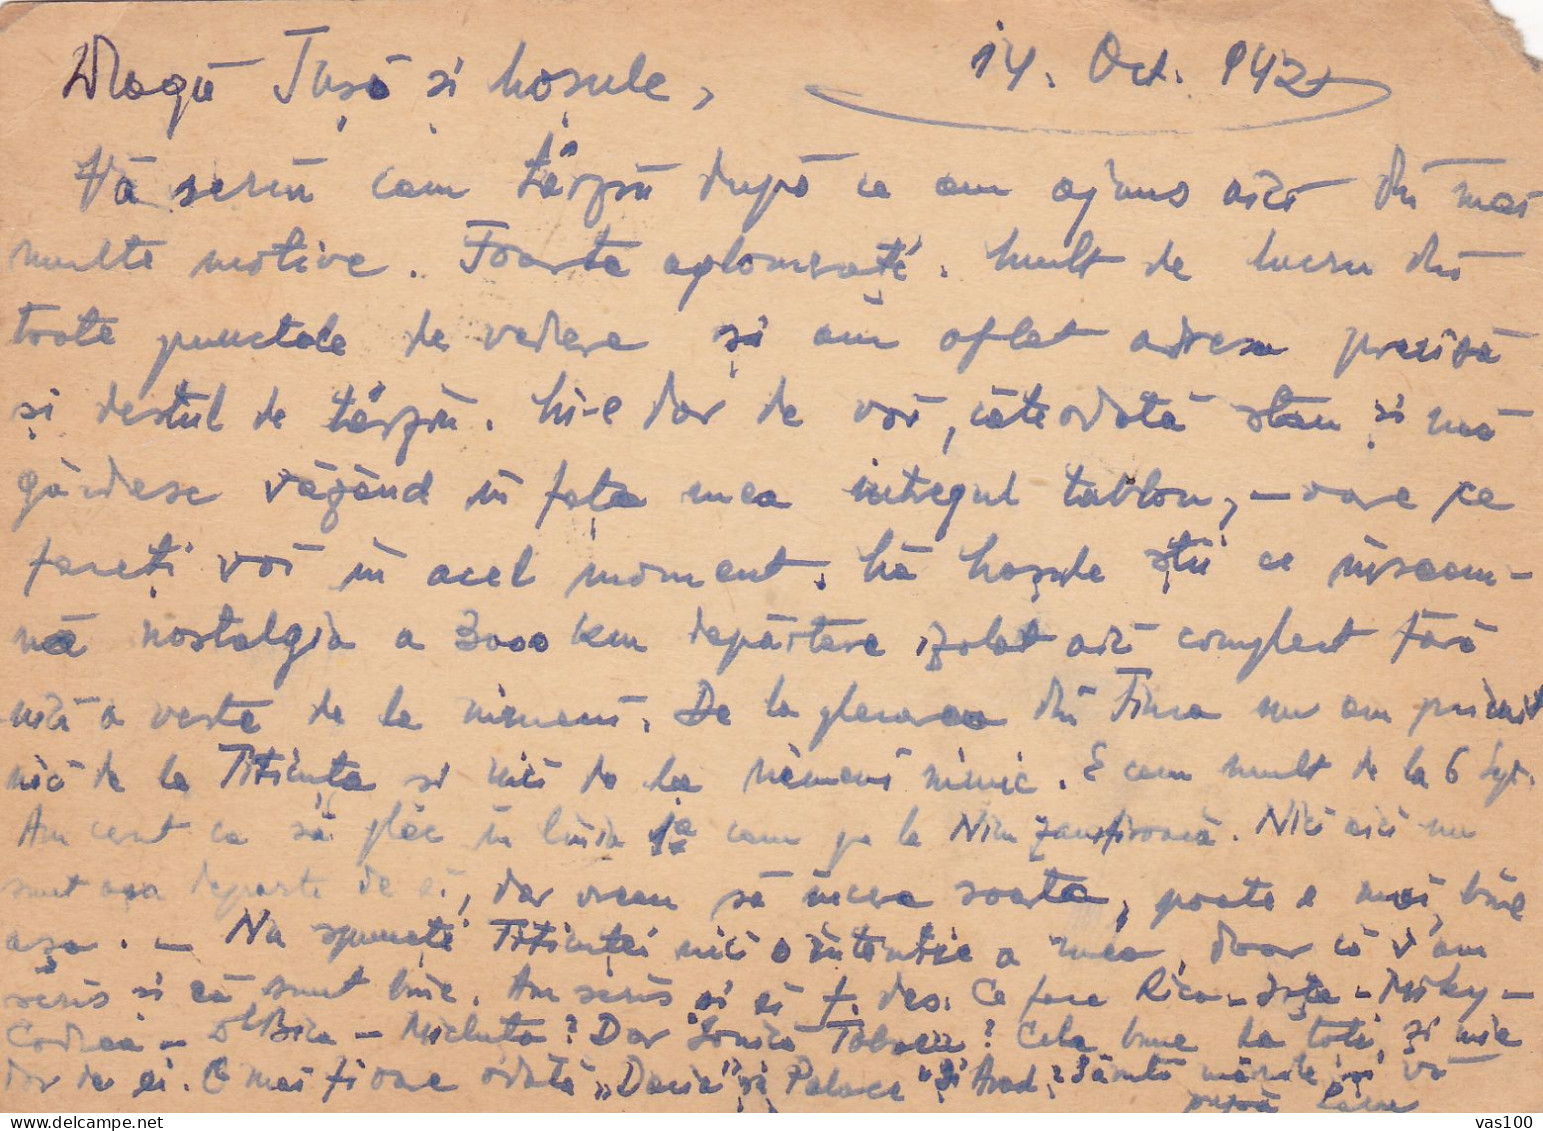 14. Oct. 942
Dragă Tușă și Moșule,
Vă scriu cam târziu după ce am ajuns aici din mai
multe motive. Foarte aglomerați. Mult de lucru din
toate punctele de vedere și am aflat adresa precisă
și destul de târziu. Mi-e dor de voi, câteodată stau și mă
gândesc văzând în fața mea întregul tablou, – oare ce
faceți voi în acel moment. Mă Moșule știi ce înseam-
nă nostalgia a 3000 km depărtare izolat aici complect fără
nici o veste de la nimeni. De la plecarea din Timra nu am primit
nici de la Titiuța și nici de la nimeni nimic. E cam mult de la 6 Sept.
Am cerut ca să plec în linia 1a cam pe la Nicu Zamfiroaică. Nici aici nu
sunt așa departe de ei, dar vreau să încerc soarta, poate e mai bine
așa. – Nu spuneți Titiuței nici o intenție a mea, doar că v'am
scris și că sunt bine. Am scris și ei f. des. Ce face Rica – Jața – Miky –
Codrea – Bica – Michuța? Dar Ionică Tobacu? Cele bune la toți, și mie
dor de ei. O mai fi oare odată „Dacia" și Palace" și Arad? Sărută mâinile și vă
pupă